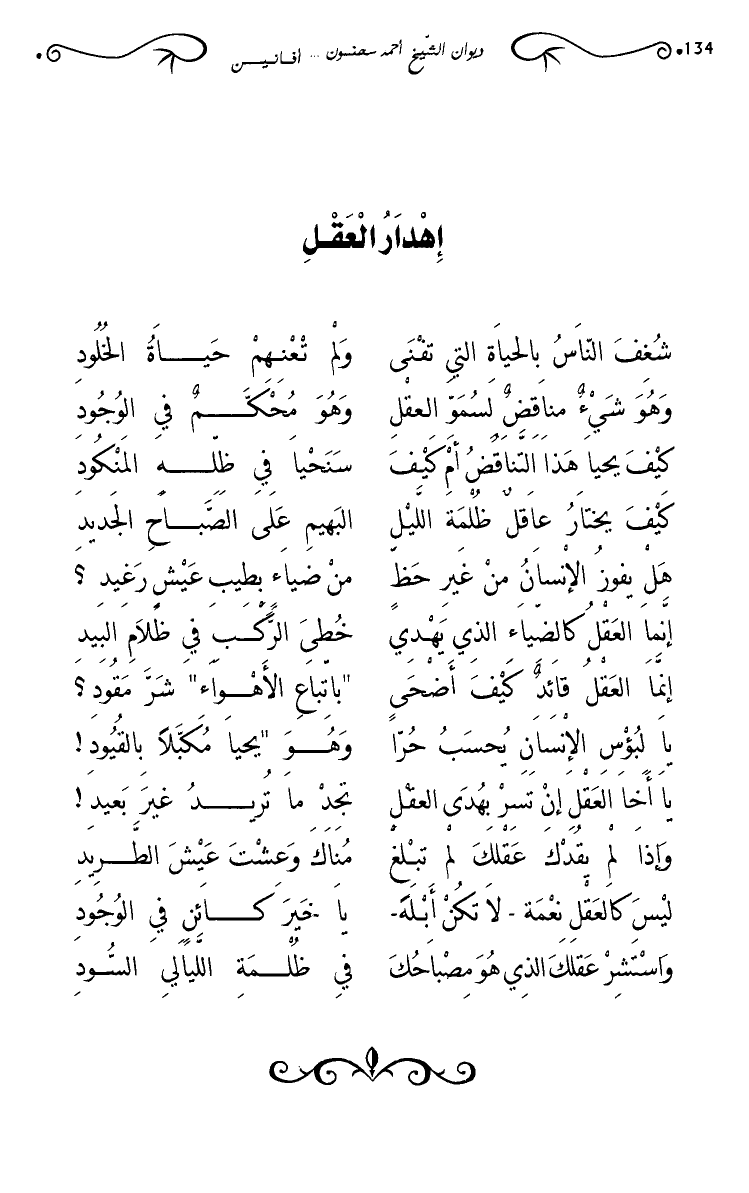 134 ديوان الشّيخ أحمد سحنون ... أفانيـن
إِهْدَارُ الْعَقْلِ
شُغِفَ النّاسُ بالحياةِ التي تفْنَى وَلَمْ تُعْنِهِمْ حَيـاةُ الخُلُودِ
وَهُوَ شَيْءٌ مناقِضٌ لِسُمَوِّ العقْلِ وَهُوَ مُحْكَمٌ في الوُجُودِ
كيْفَ يحيا هَذا التَّناقُضُ أمْ كيْفَ سَنَحْيا في ظلِّهِ المنْكُودِ
كيْفَ يختارُ عاقلٌ ظُلْمَة الليْلِ البَهيمِ عَلَى الصَّباحِ الجديدِ
هَلْ يفوزُ الإنْسانُ منْ غيرِ حَظٍّ منْ ضياءٍ بِطيبِ عَيْشٍ رَغيدِ ؟
إنَّما العَقْلُ كالضِّياء الذي يَهْدي خُطىَ الرَّكْبِ في ظَلامِ البيدِ
إنَّما العَقْلُ قائدٌ كَيْفَ أضْحَى "باتِّباعِ الأَهْواء" شَرَّ مَقُودِ ؟
يا لَبُؤْسِ الإنْسانِ يُحسَبُ حُرّاً وَهُـوَ "يحيا مُكَبَّلاً بالقُيُودِ !
يا أخا العَقْلِ إنْ تسرْ بِهُدَى العقْلِ تَجِدْ ما تُريـدُ غيرَ بَعيدِ !
وَإذا لمْ يقُدْكَ عَقْلُكَ لمْ تبْلغْ مُناكَ وَعِشْتَ عَيْشَ الطَّريدِ
ليْسَ كالعَقْلِ نعْمَة - لا تكُنْ أَبْلَهَ- يا -خَيرَ كـائنٍ في الوُجُودِ
وَاسْتَشِرْ عَقلكَ الذي هُوَ مِصْباحُكَ في ظُلْـمَةِ الليالي السُّـودِ